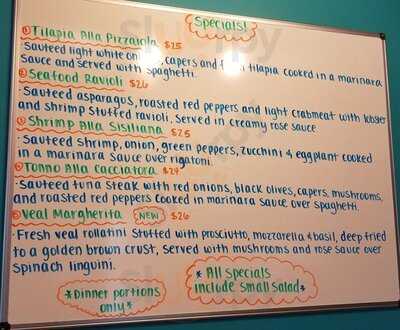 Specials!
Tilapia Alla Pizzaiola $25
·Sauteed light white onions, capers and tilapia cooked in a marinara
sauce and served with spaghetti.
Seafood Ravioli $26
·Sauteed asparagus, roasted red peppers and light crabmeat with lobster
and shrimp stuffed ravioli. Served in creamy rose sauce
Shrimp Alla Sisiliana $25
·Sauteed shrimp, onion, green peppers, zucchini & eggplant cooked
in a marinara sauce over rigatoni.
Tonno Alla Cacciatora
·Sauteed tuna steak with red onions, black olives, capers, mushrooms,
and roasted red peppers cooked in marinara sauce over spaghetti.
Veal Margherita NEW $26
·Fresh veal rollatini stuffed with prosciutto, mozzarella & basil, deep fried
to a golden brown crust, served with mushrooms and rose sauce over
spinach linguini.
*Dinner portions
only*
*All specials
include small salad*